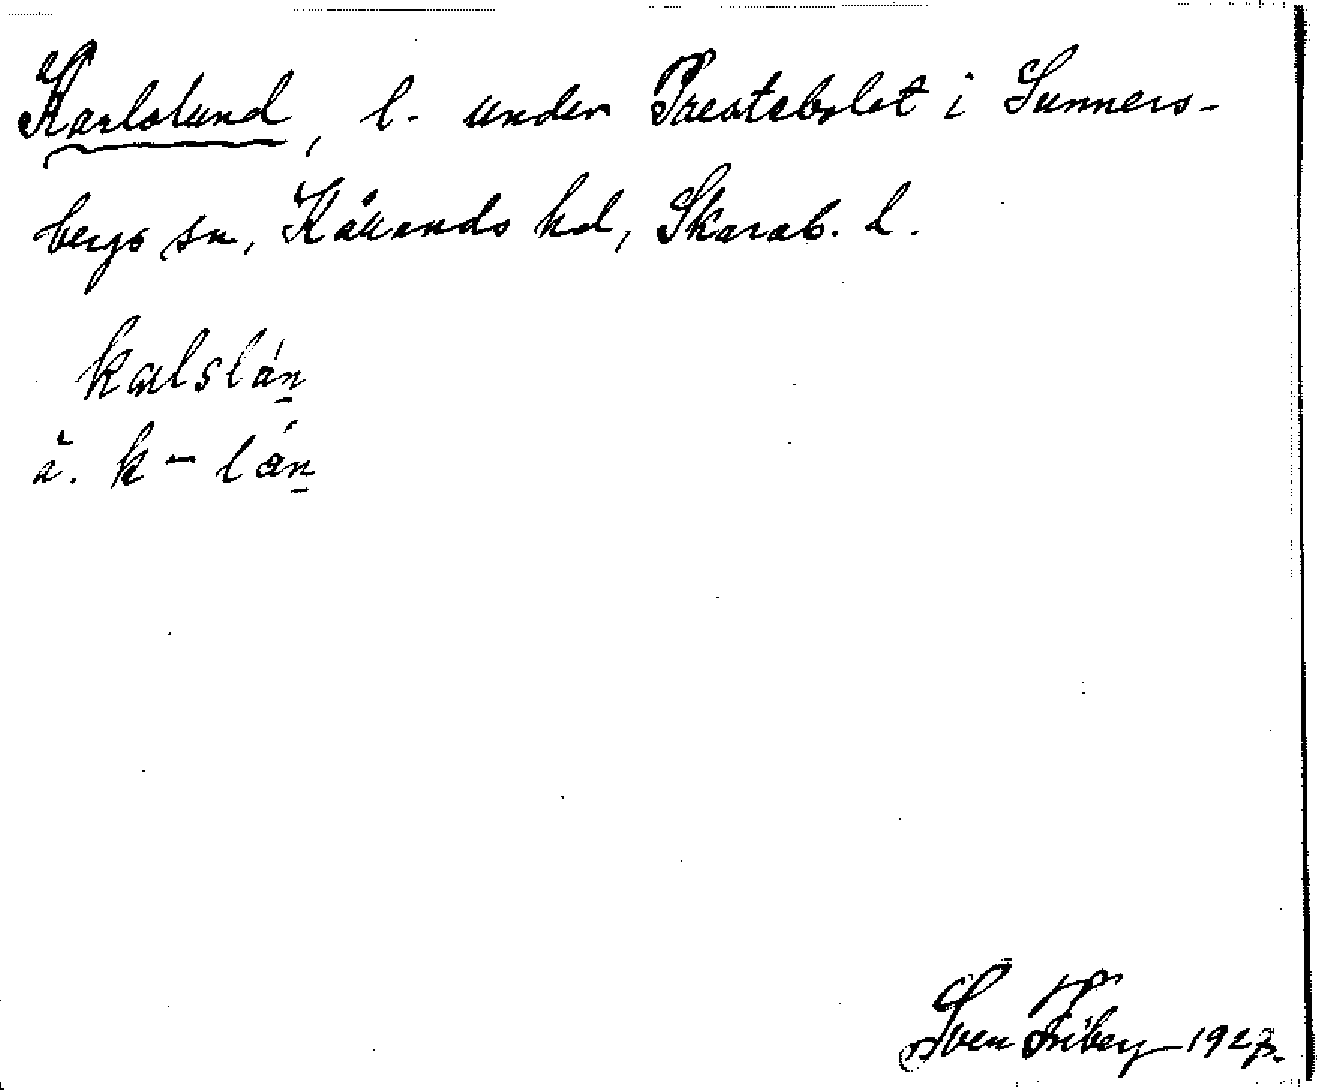 Karlslund, l. under Prestebolet i Sunners-
bergs sn, Kållands hd, Skarab. l.
kalslán
ä. k - lán
Sven Friberg 1927.